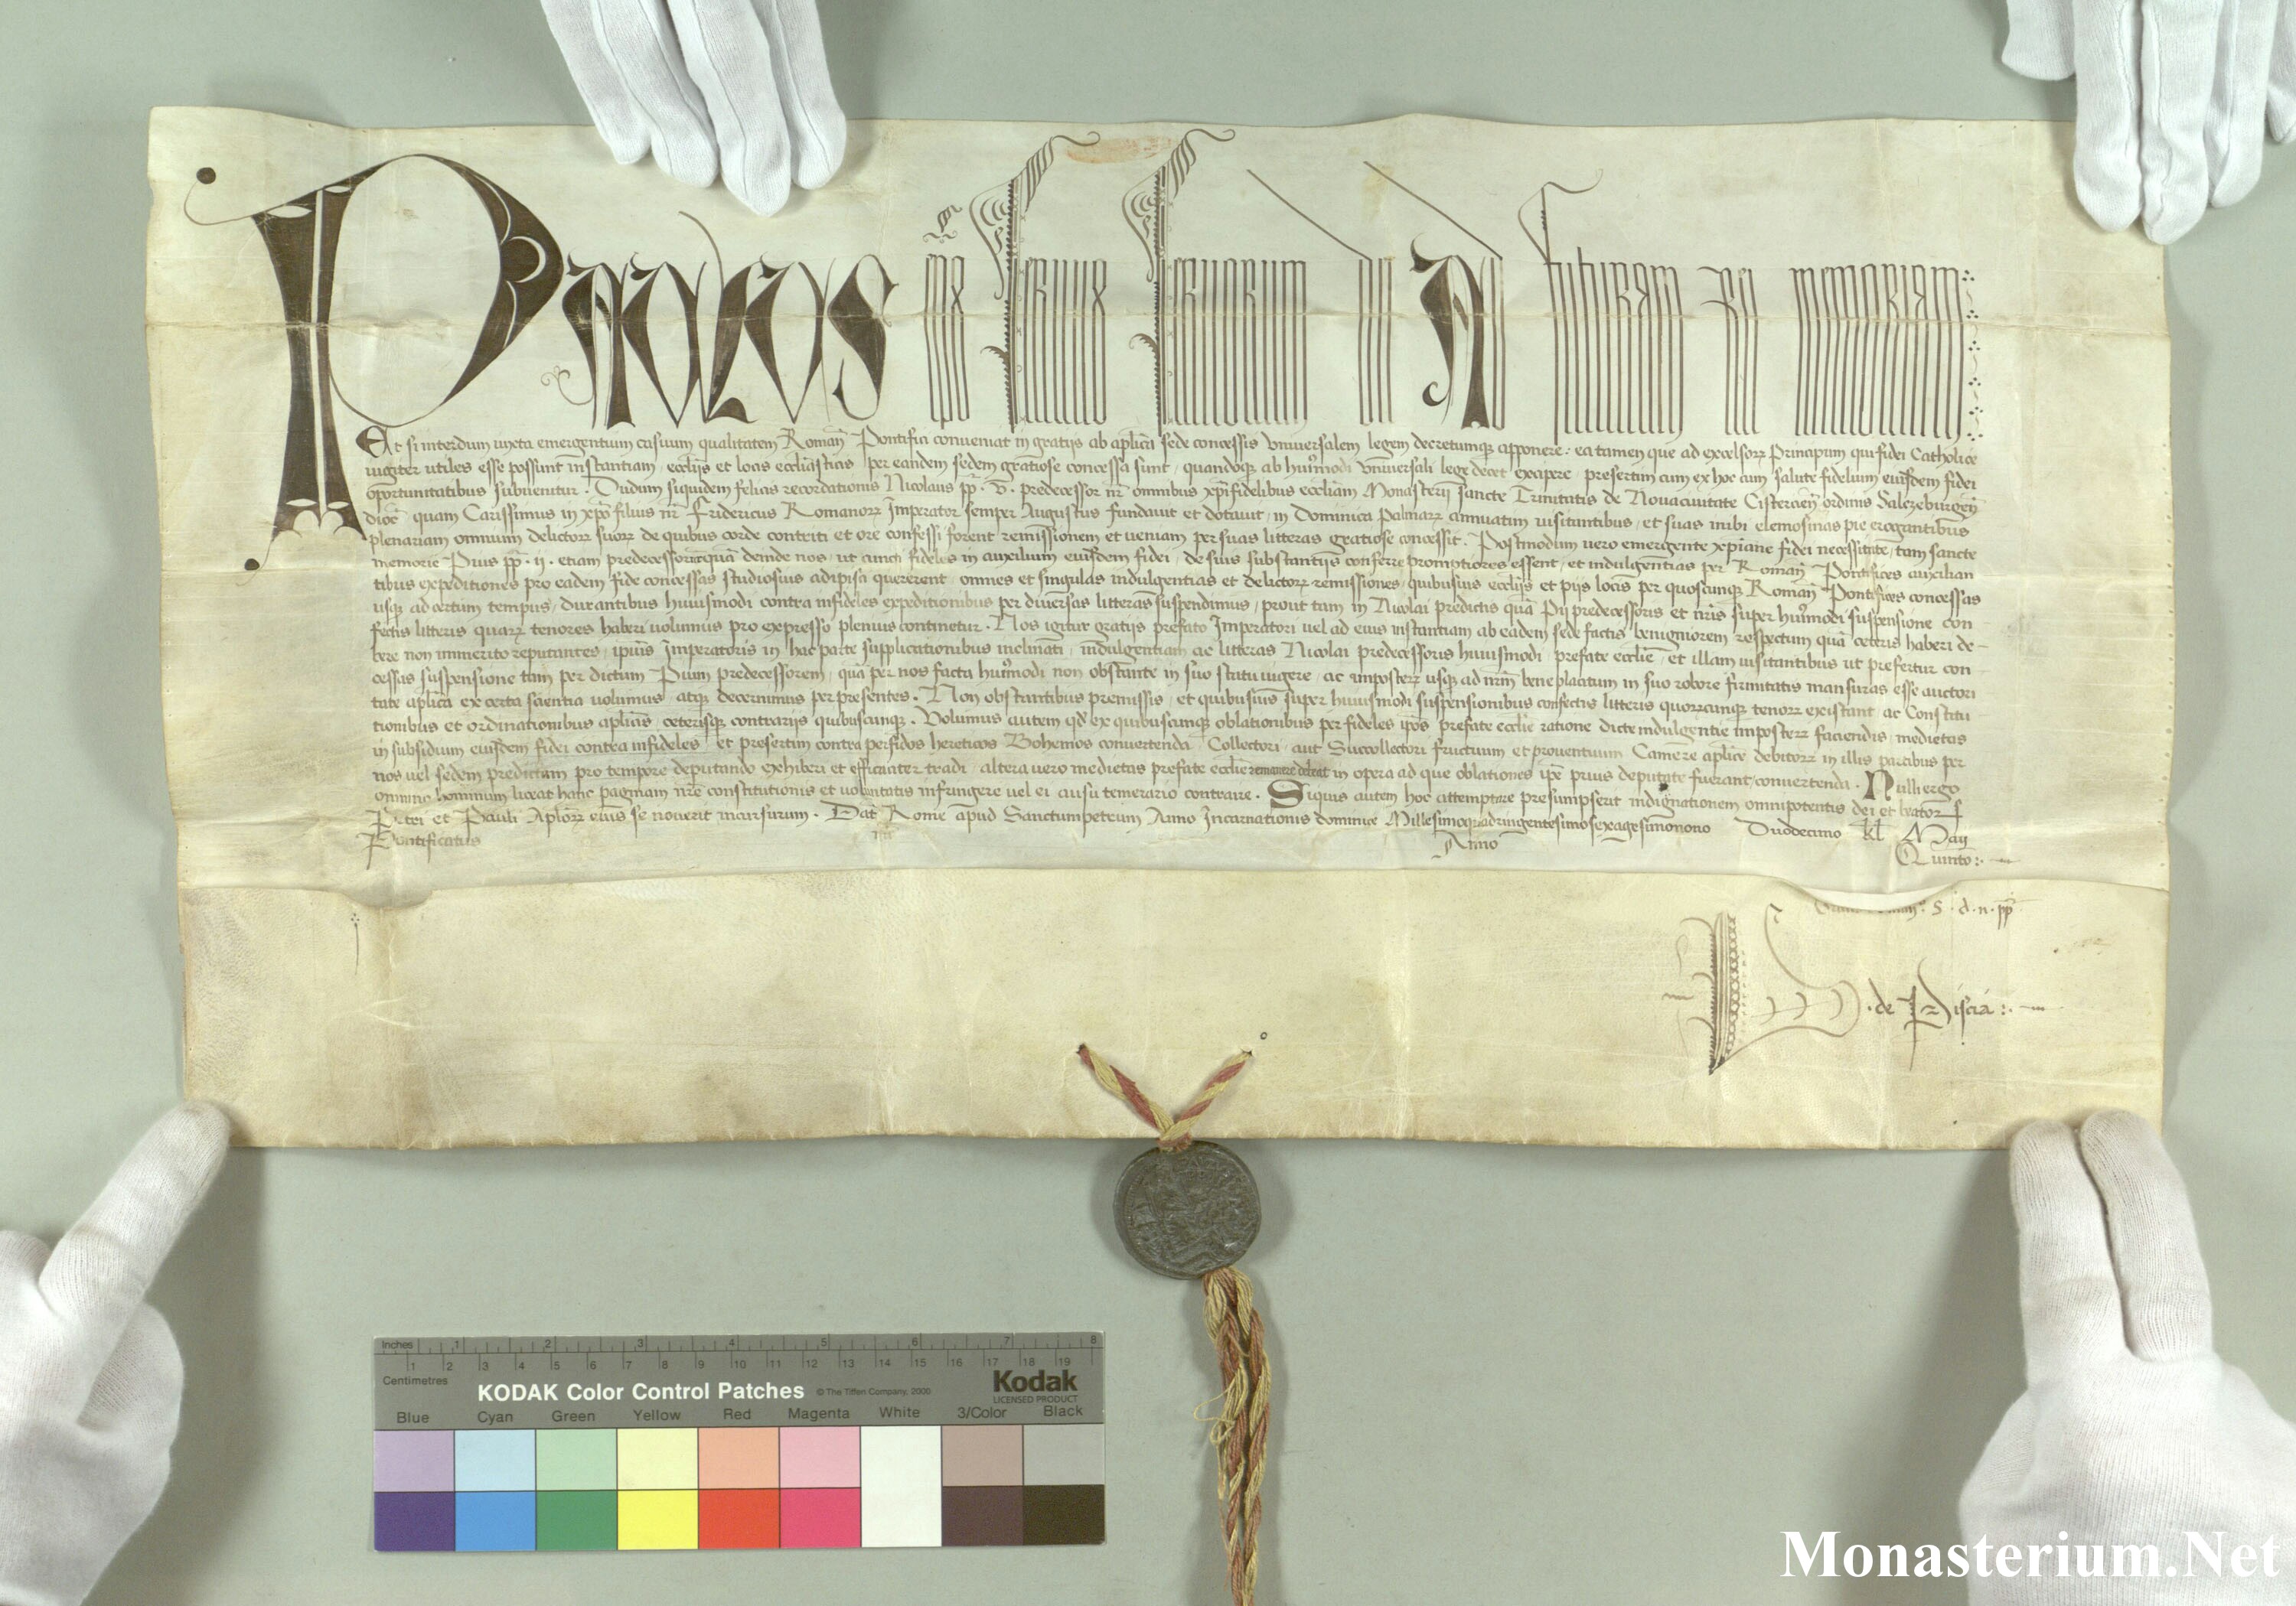 PAULUS ep̄s seruus seruorum dei Ad futuram rei memoriam
Et si interdum iuxta emergentium casuum qualitatem Roman̄ Pontifici conueniat in gratijs ab aplica sede concessis vniuersalem legem decretumq apponere ea tamen que ad excelsorꝝ Principum qui fidei Catholice
iugiter utiles esse possunt instantiam ecclijs et locis ecclīasticis per eandem sedem gratiose concessa sunt quandoq ab huīmodi vniuersali lege decet excipere presertim cum ex hoc cum salute fidelium eiusdem fidei
oportunitatibus subuenitur. Dudum siquidem felicis recordationis Nicolaus pp̄. v. predecessor nr̄ omnibus xp̄ifidelibus eccliam Monasterij sancte Trinitatis de Nouaciuitate Cistercien̄ ordinis Salczeburgen̄
dioc̄ quam Carissimus in xp̄o filius nr̄ Fridericus Romanorꝝ Imperator semper Augustus fundauit et dotauit in Dominica Palmarꝝ annuatim uisitantibus et suas inibi elemosinas pie erogantibus
plenariam omnium delictorꝝ suorꝝ de quibus corde contriti et ore confessi forent remissionem et ueniam per suas litteras gratiose concessit. Postmodum uero emergente xp̄iane fidei necessitate tam sancte
memorie Pius pp̄. ij. etiam predecessor quā deinde nos ut cuncti fideles in auxilium eiusdem fidei de suis substantijs conferre promptiores essent et indulgentias per Roman̄ Pontifices auxilian
tibus expeditiones pro eadem fide concessas studiosius adipisci quererent omnes et singulas indulgentias et delictorꝝ remissiones quibusuis ecclijs et pijs locis per quoscunq Roman̄ Pontifices concessas
usq ad certum tempus durantibus huiusmodi contra infideles expeditionibus per diuersas litteras suspendimus prout tam in Nicolai predictis quā Pij predecessoris et nr̄is super huīmodi suspensione con
fectis litteris quarꝝ tenores haberi uolumus pro expresso plenius continetur. Nos igitur gratijs prefato Imperatori uel ad eius instantiam ab eadem sede factis benigniorem respectum quā ceteris haberi de-
bere non immerito reputantes ipsius Imperatoris in hac parte supplicationibus inclinati indulgentiam ac litteras Nicolai predecessoris huiusmodi prefate ecclie et illam uisitantibus ut prefertur con
cessas suspensione tam per dictum Pium predecessorem quā per nos facta huīmodi non obstante in suo statu uigere ac imposterꝝ usq ad nr̄m beneplacitum in suo robore firmitatis mansuras esse auctori
tate aplica ex certa scientia uolumus atq decernimus per presentes. Non obstantibus premissis et quibusuis super huiusmodi suspensionibus confectis litteris quorꝝcunq tenorꝝ existant ac Constitu
tionibus et ordinationibus aplicis ceterisq contrarijs quibuscunq. Volumus autem qd̄ ex quibuscunq oblationibus per fideles ip̄os prefate ecclie ratione dicte indulgentie imposterꝝ faciendis medietas
in subsidium eiusdem fidei contra infideles et presertim contra perfidos hereticos Bohemos conuertenda Collectori aut Succollectori fructuum et prouentuum Camere aplice debitorꝝ in illis partibus per
nos uel sedem predictam pro tempore deputando exhiberi et efficaciter tradi altera uero medietas prefate ecclie remanere debeat in opera ad que oblationes ip̄e prius deputate fuerant conuertenda. Nulli ergo
omnino hominum liceat hanc paginam nr̄e constitutionis et uoluntatis infringere uel ei ausu temerario contraire. Siquis autem hoc attemptare presumpserit indignationem omnipotentis dei et beatorꝝ
Petri et Pauli Aplorꝝ eius se nouerit incursurum. Dat̄ Rome apud Sanctumpetrum Anno Incarnationis dominice Millesimoquadringentesimosexagesimonono Duodecimo kl̄ Maij
Pontificatus nr̄i Anno Quinto:.
S. d. n. pp̄
de Piscia:.
Inches 1 2 3 4 5 6 7 8
1 2 3 4 5 6 7 8 9 10 11 12 13 14 15 16 17 18 19
Centimetres
KODAK Color Control Patches © The Tiffen Company, 2000 Kodak
LICENSED PRODUCT
Blue Cyan Green Yellow Red Magenta White 3/Color Black
Monasterium.Net